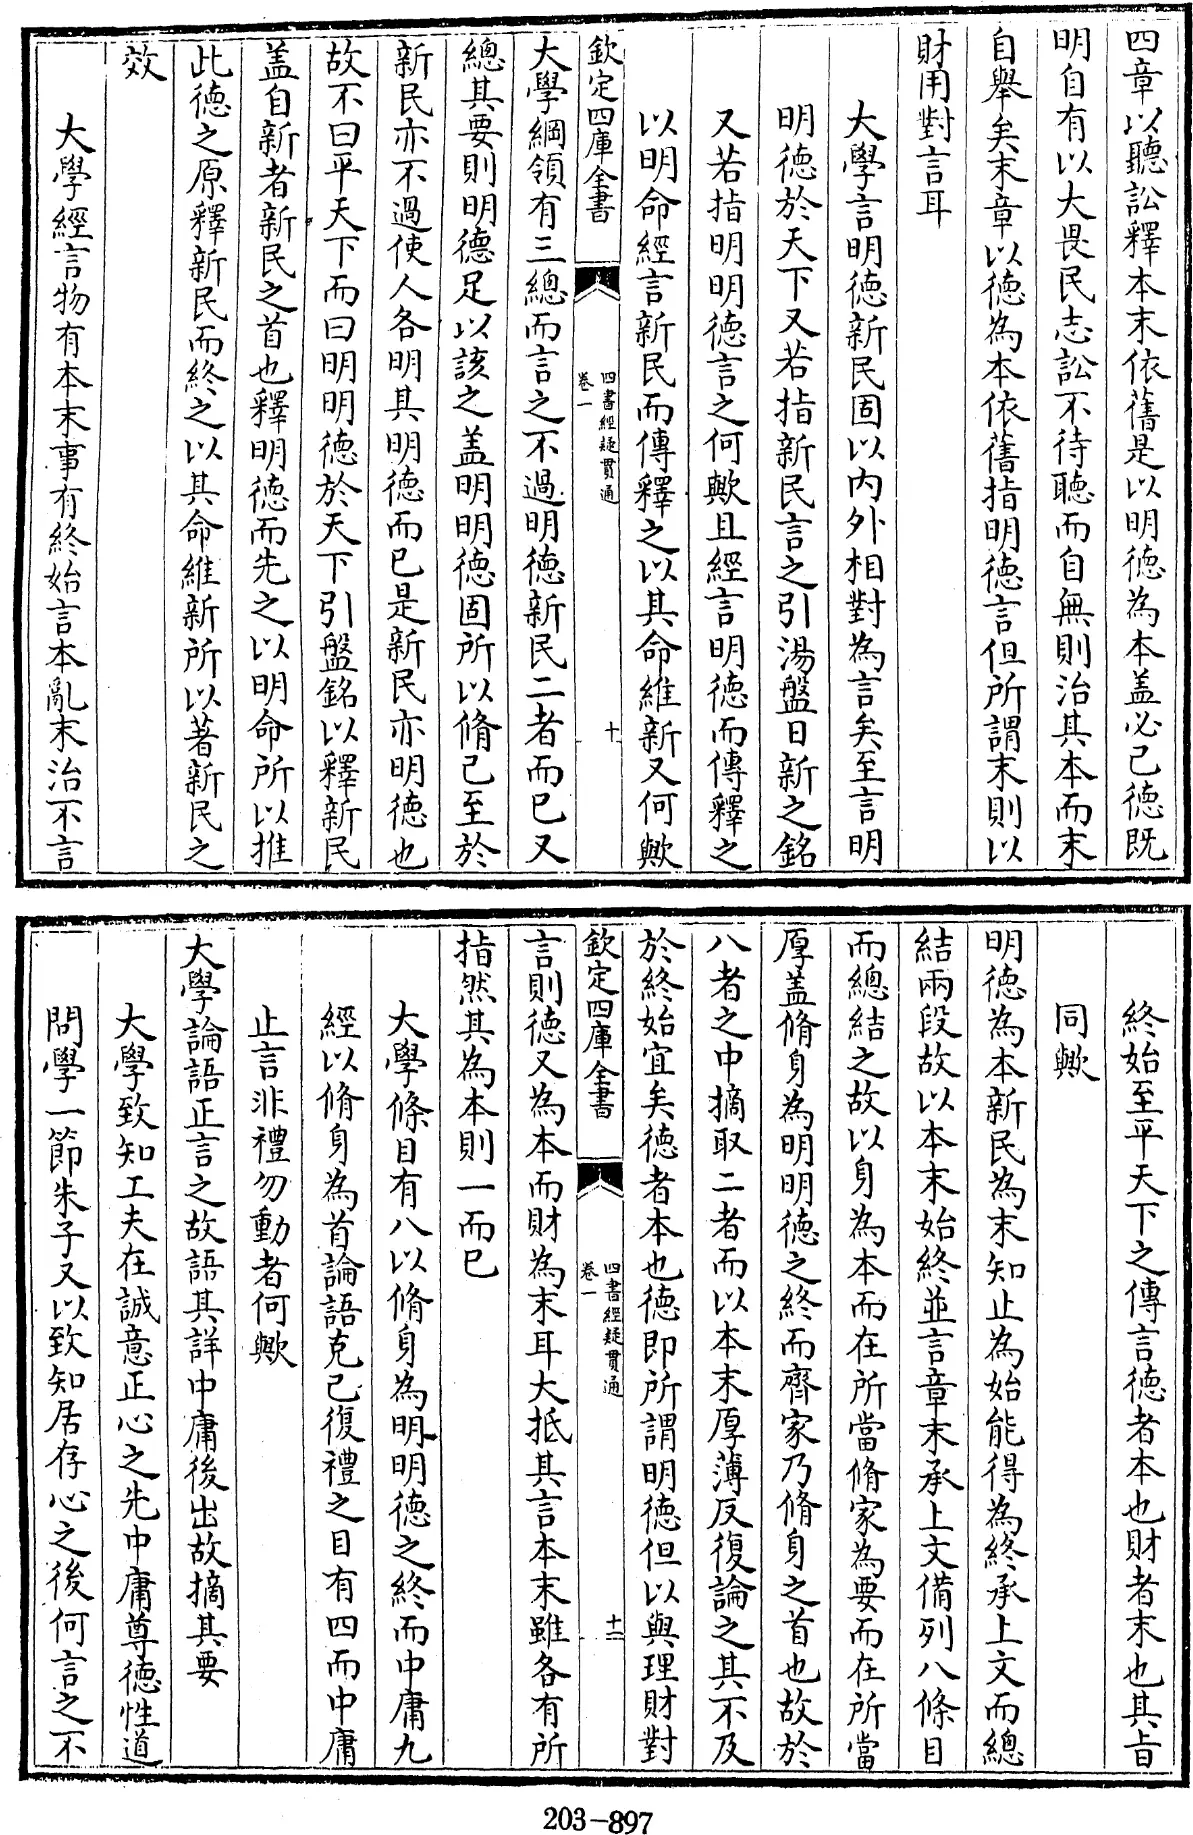 四章以聽訟釋本末依舊是以明徳為本盖必己徳既
明自有以大畏民志訟不待聽而自無則治其本而末
自舉矣末章以徳為本依舊指明徳言但所謂末則以
財用對言耳
大學言明徳新民固以内外相對為言矣至言明
明徳於天下又若指新民言之引湯盤日新之銘
又若指明明徳言之何歟且經言明徳而傳釋之
以明命經言新民而傳釋之以其命維新又何歟
欽定四庫全書
四書經疑貫通
卷一
十
大學綱領有三總而言之不過明徳新民二者而已又
總其要則明徳足以該之盖明明徳固所以脩己至於
新民亦不過使人各明其明徳而已是新民亦明徳也
故不曰平天下而曰明明徳於天下引盤銘以釋新民
盖自新者新民之首也釋明徳而先之以明命所以推
此徳之原釋新民而終之以其命維新所以著新民之
效
大學經言物有本末事有終始言本亂末治不言
終始至平天下之傳言徳者本也財者末也其旨
同歟
明徳為本新民為末知止為始能得為終承上文而總
結兩段故以本末始終並言章末承上文備列八條目
而總結之故以身為本而在所當脩家為要而在所當
厚盖脩身為明明徳之終而齊家乃脩身之首也故於
八者之中摘取二者而以本末厚薄反復論之其不及
於終始宜矣徳者本也徳即所謂明徳但以與理財對
欽定四庫全書
四書經疑貫通
卷一
十一
言則徳又為本而財為末耳大抵其言本末雖各有所
指然其為本則一而已
大學條目有八以脩身為明明徳之終而中庸九
經以脩身為首論語克己復禮之目有四而中庸
止言非禮勿動者何歟
大學論語正言之故語其詳中庸後出故摘其要
大學致知工夫在誠意正心之先中庸尊徳性道
問學一節朱子又以致知居存心之後何言之不
203-897